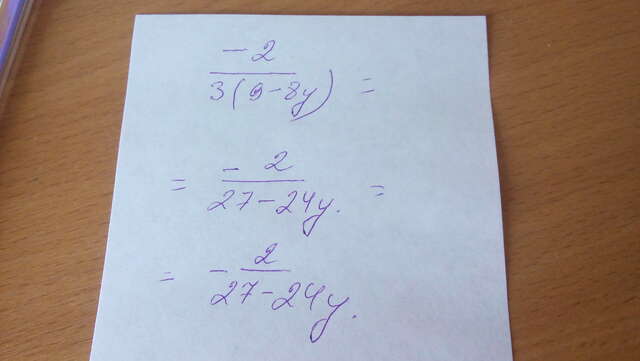 -2
3(9-8y) =
= -2
27-24y. =
= - 2
27-24y.